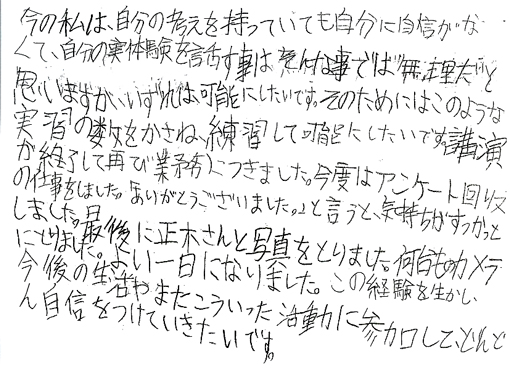 今の私は、自分の考えを持っていても自分に自信がな
くて、自分の実体験を話す事は、そんな事では無理だと
思いますが、いずれは、可能にしたいです。そのためにはこのような
実習の数をかさね、練習して可能にしたいです。講演
が終了して再び業務につきました。今度はアンケート回収
の仕事をしました。「ありがとうございました。」と言うと、気持ちがすっかっと
しました。最後に正木さんと写真をとりました。何台ものカメラ
にとりました。よい一日になりました。この経験を生かし、
今後の生活やまたこういった活動に参加して、どんど
ん自信をつけていきたいです。